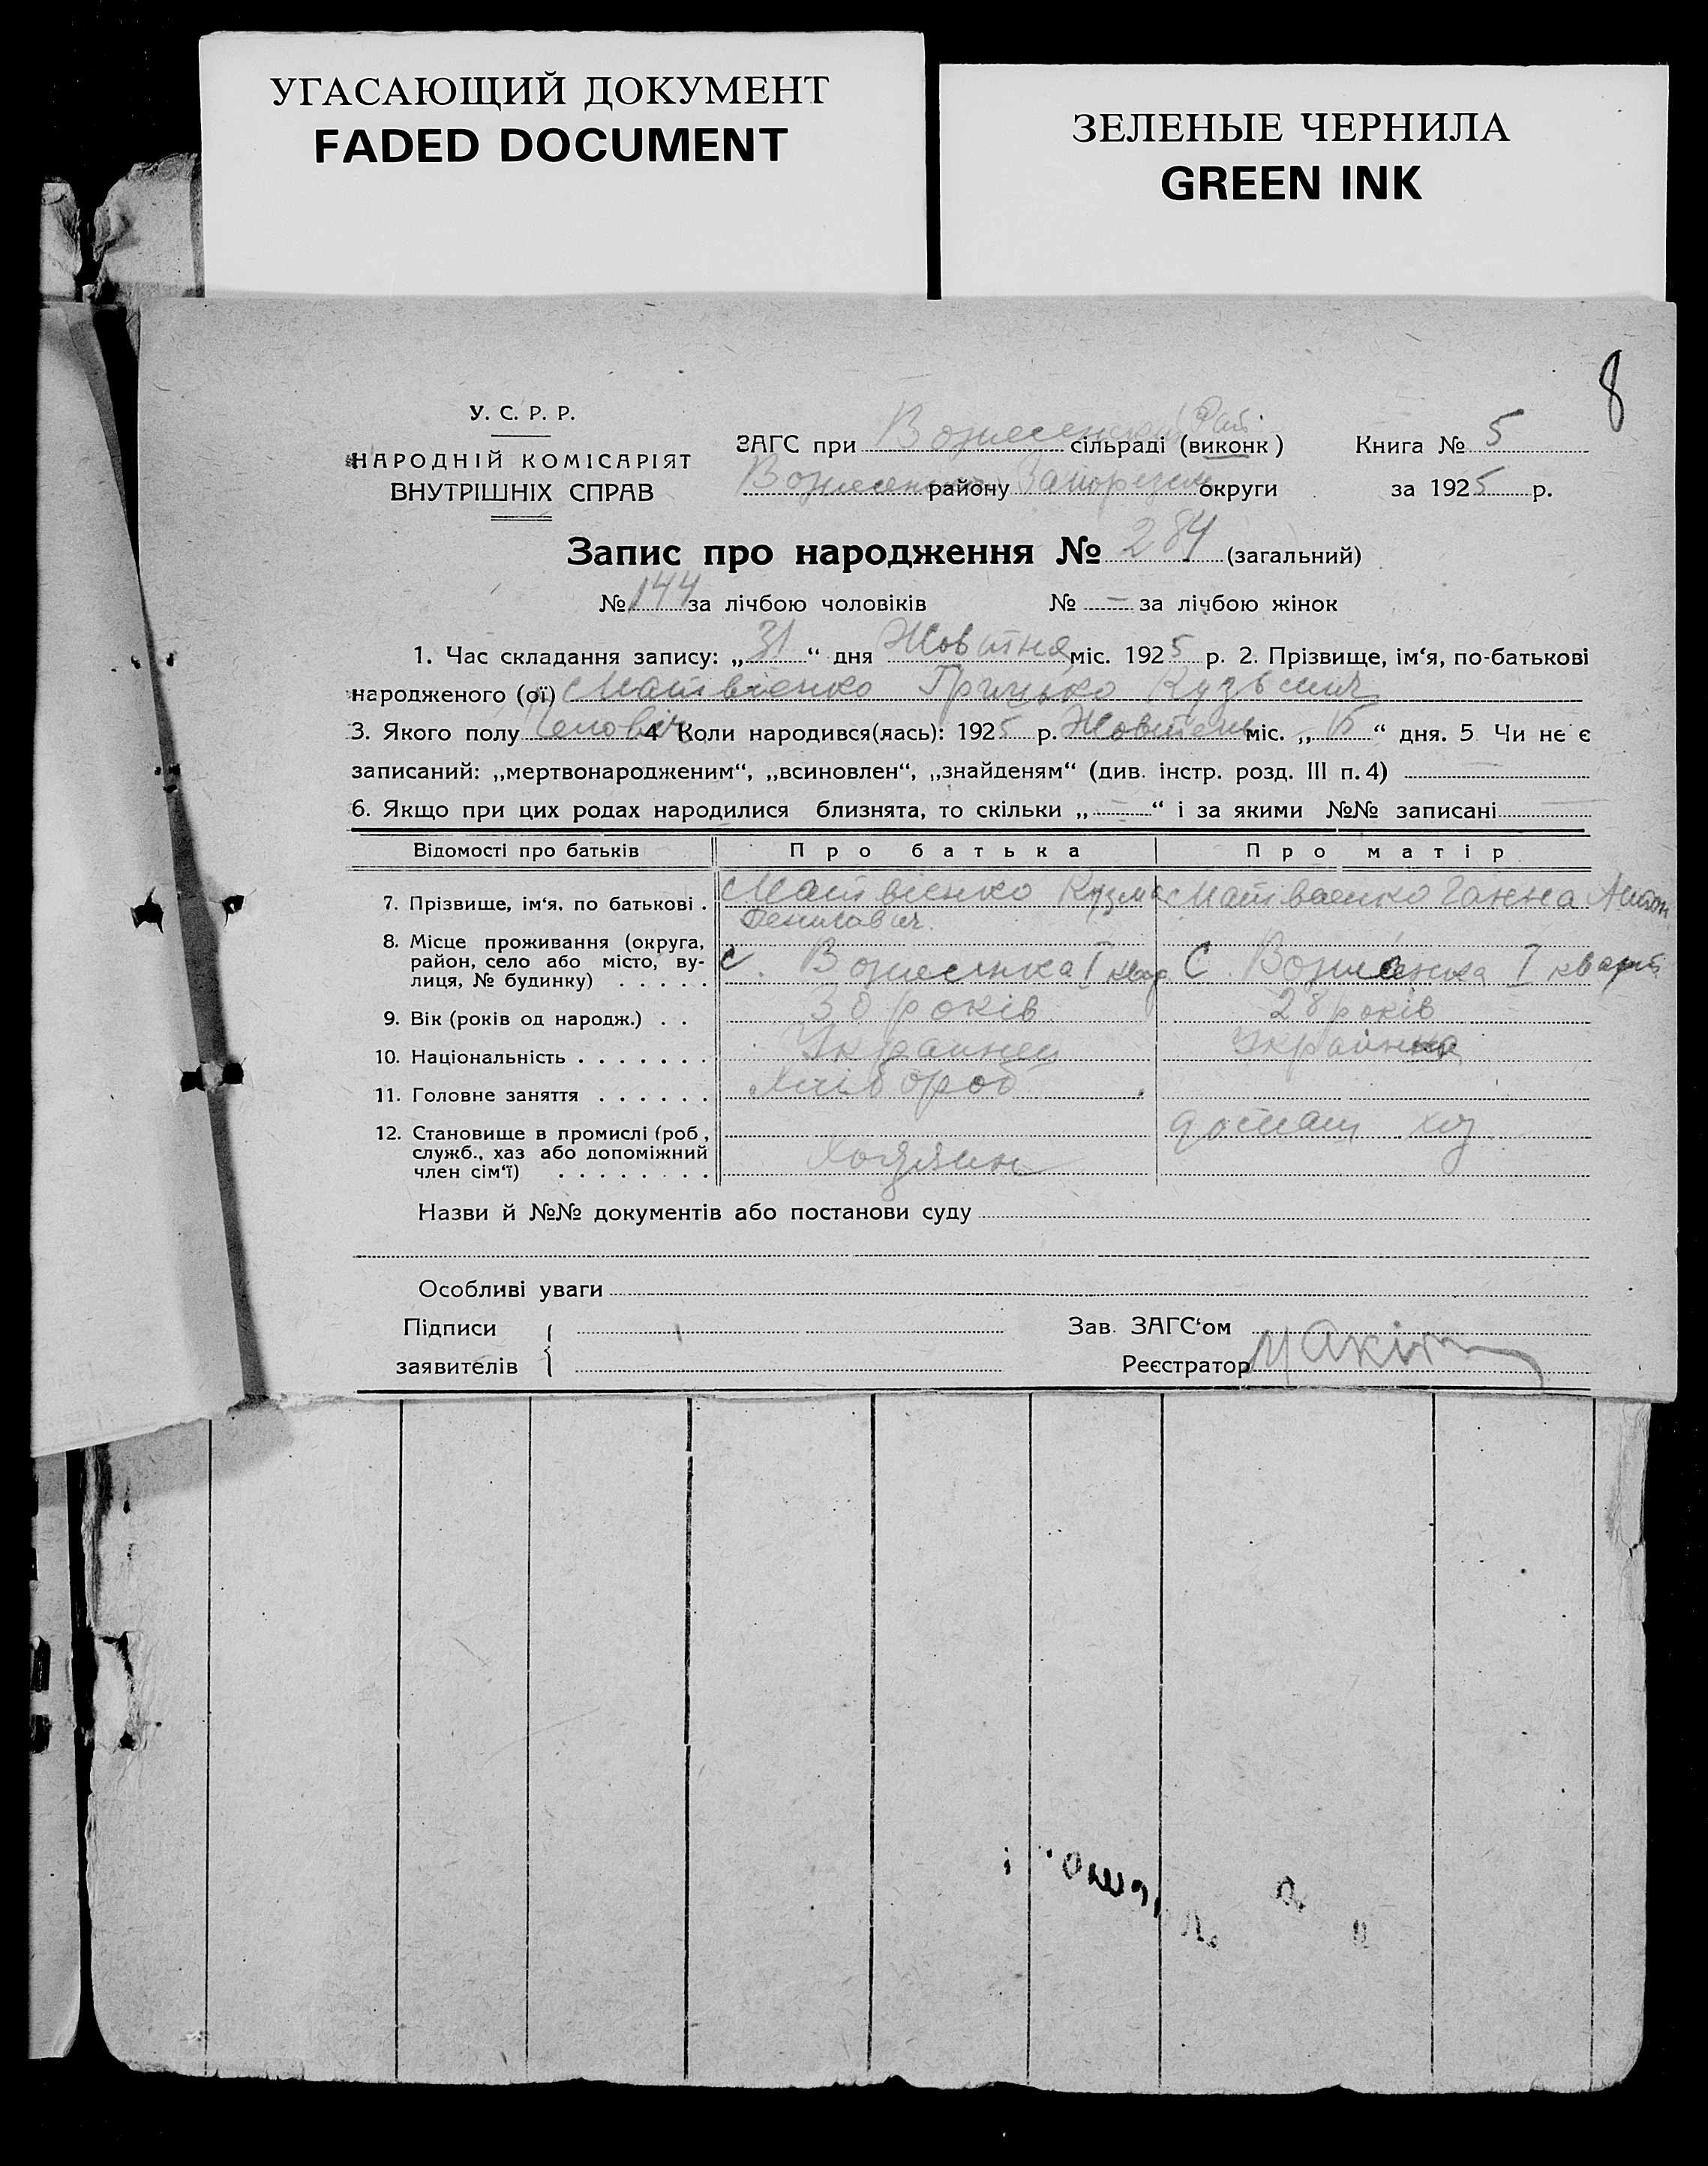 УГАСАЮЩИЙ ДОКУМЕНТ
FADED DOCUMENT
ЗЕЛЕНЫЕ ЧЕРНИЛА
GREEN INK
8
У. С. Р. Р.
НАРОДНІЙ КОМІСАРІЯТ
ВНУТРІШНІХ СПРАВ
ЗАГС при Вознесенськ Рай сільраді (виконк)
Вознесенськ району Запорізьк округи
Книга № 5
за 1925 р.
Запис про народження № 284 (загальний)
№ 144 за лічбою чоловіків № — за лічбою жінок
1. Час складання запису: „31“ дня Жовтня міс. 1925 р. 2. Прізвище, ім‘я, по-батькові
народженого (ої) Матвієнко Грицько Кузьмич
3. Якого полу Чоловіч 4 Коли народився(лась): 1925 р. Жовтень міс. „15“ дня. 5 Чи не є
записаний: „мертвонародженим“, „всиновлен“, „знайденям“ (див. інстр. розд. III п. 4)
6. Якщо при цих родах народилися близнята, то скільки „—“ і за якими №№ записані
Відомості про батьків Про батька Про матір
7. Прізвище, ім‘я, по батькові . Матвієнко Кузма Денисович Матвієнко Ганна
8. Місце проживання (округа, район, село або місто, ву-
лиця, № будинку) . . . . . с. Вознесенка I квар С. Вознесенка I кварт
9. Вік (років од народж.) . . 30 років 28 років
10. Національність . . . . . . . Украинец Украинка
11. Головне заняття . . . . . . Хлібороб
12. Становище в промислі (роб,
служб., хаз або допоміжний
член сім‘ї) . . . . . . . . Хозяин
Назви й №№ документів або постанови суду
Особливі уваги
Підписи
заявителів
Зав. ЗАГС‘ом
Реєстратор